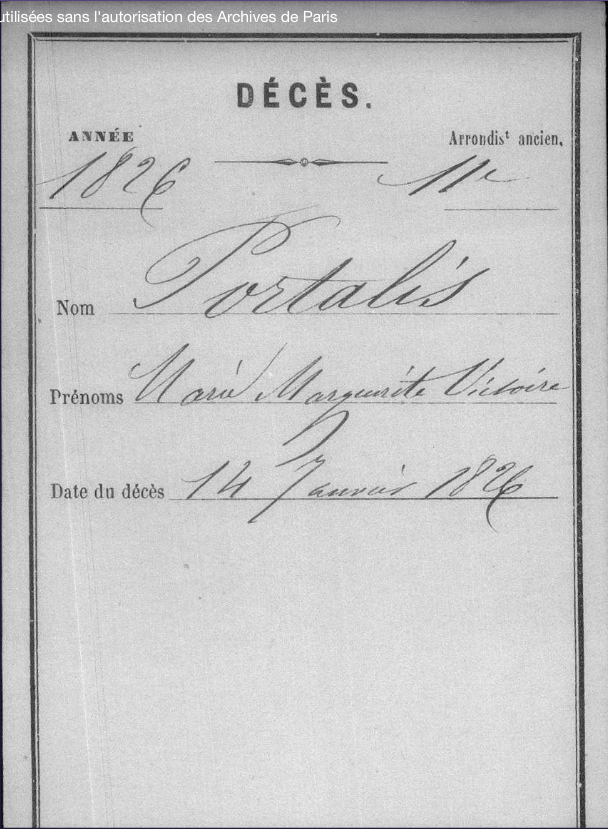 utilisées sans l'autorisation des Archives de Paris
DÉCÈS.
ANNÉE
Arrondisᵗ ancien.
1826
11e
Nom Portalis
Prénoms Marie Marguerite Victoire
Date du décès 14 Janvier 1826